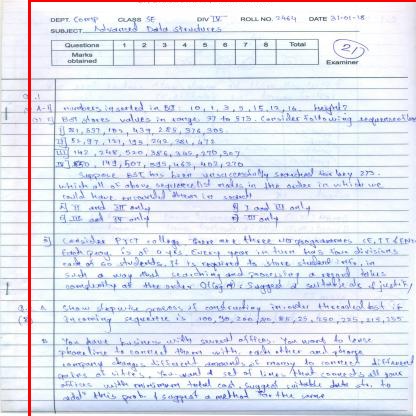 DEPT. Comp CLASS SE DIV IV ROLL NO. 2464 DATE 31-01-18
SUBJECT Advanced Data structures
Questions 1 2 3 4 5 6 7 8 Total
Marks obtained
21
Examiner
Q.1
numbers inserted in BST : 10, 1, 3, 5, 15, 12, 16. height?
BST stores values in range 37 to 573. Consider following sequence of keys
I] 81, 537, 102, 439, 285, 376, 305
II] 52, 97, 121, 195, 242, 381, 472
III] 142, 248, 520, 386, 345, 270, 307
IV] 550, 149, 507, 395, 463, 402, 270
Suppose BST has been unsuccessfully searched for key 273.
which all of above sequences list nodes in the order in which we
could have encountered them in search
A] II and III only
B] I and III only
C] III and IV only
D] III only
Consider PICT college. There are three UG programmes (CE, IT & ENTC)
Each prog. is of 4 yrs. Every year in turn has four divisions
each of 60 students. It is required to store student info. in
such a way that searching and processing a record takes
complexity of the order O(log n). Suggest a suitable ds & justify
Q. 2 A Show stepwise process of constructing inorder threaded bst if
incoming sequence is 100, 50, 200, 20, 85, 25, 250, 225, 215, 235
B You have business with several offices. You want to lease
phone line to connect them with each other and phone
company charges different amounts of money to connect different
pairs of cities. You want a set of lines that connects all your
offices with minimum total cost. Suggest suitable data str. to
solve this prob. & suggest a method for the same